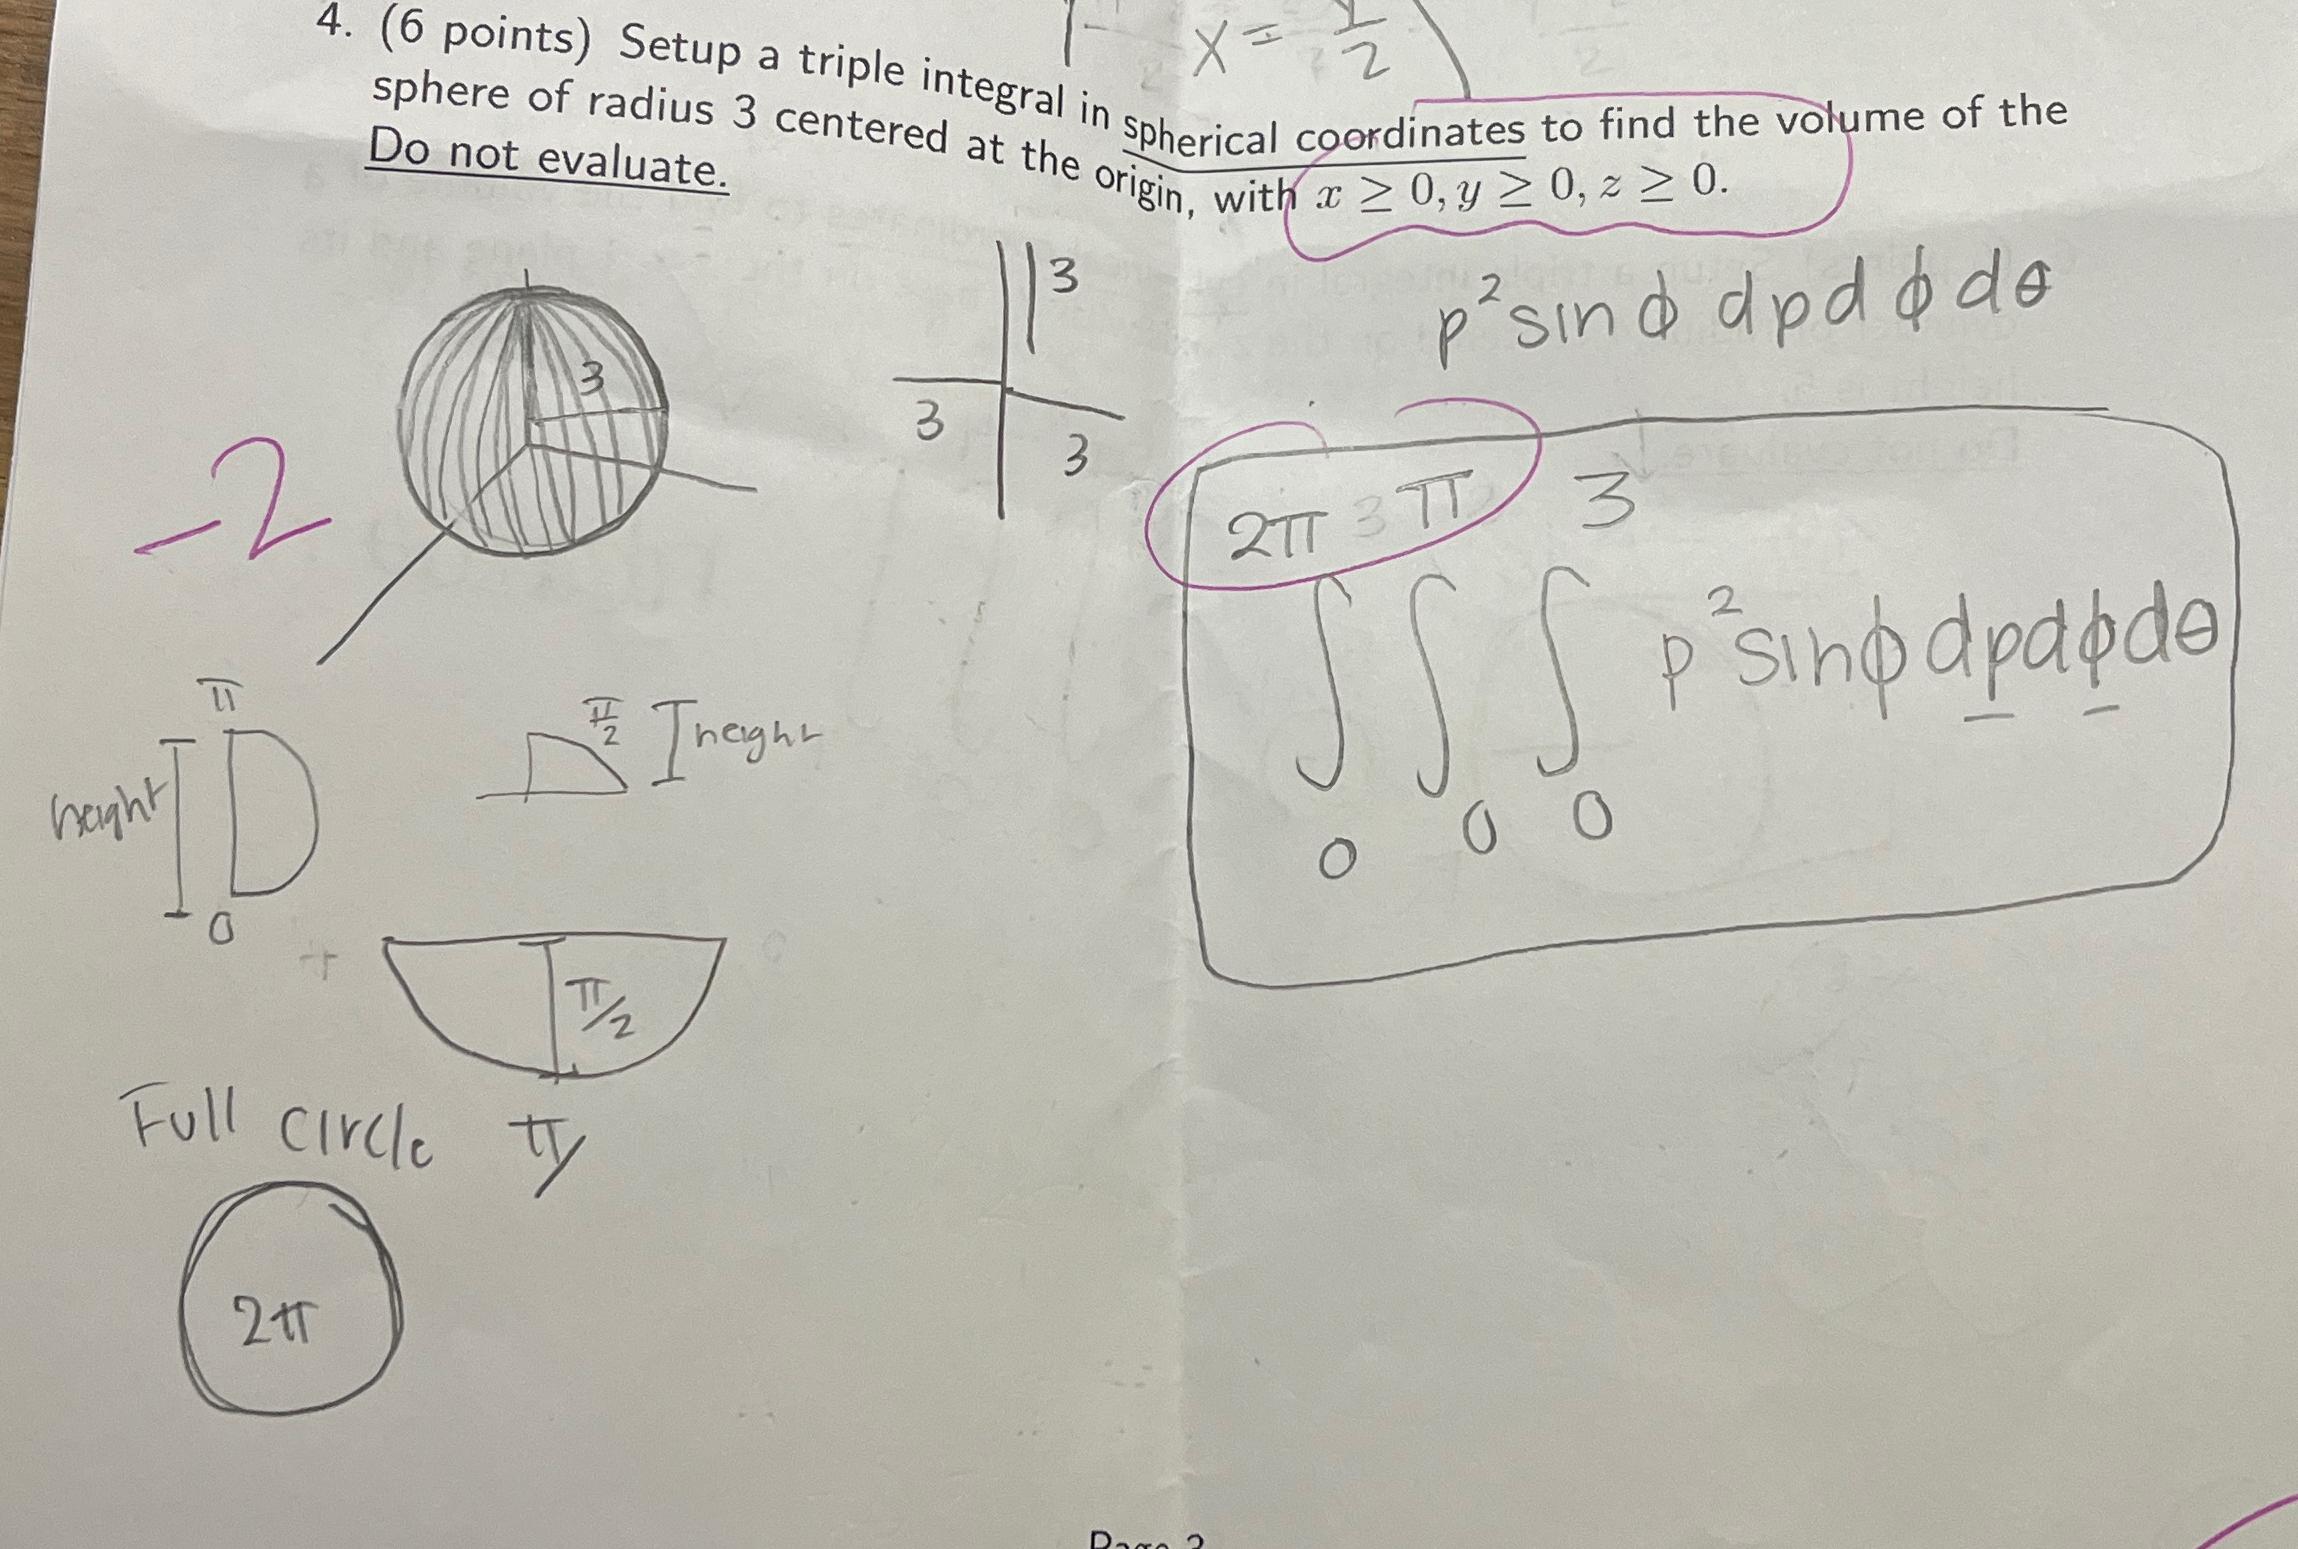 x = 1/2
4. (6 points) Setup a triple integral in spherical coordinates to find the volume of the
sphere of radius 3 centered at the origin, with x ≥ 0, y ≥ 0, z ≥ 0.
Do not evaluate.
3
3
3
3
p² sin ϕ dp d ϕ dθ
-2
2π π 3
∫ ∫ ∫ p² sinϕ dp dϕ dθ
0 0 0
π
height
0
π/2 height
π/2
Full circle π
2π
Page 3